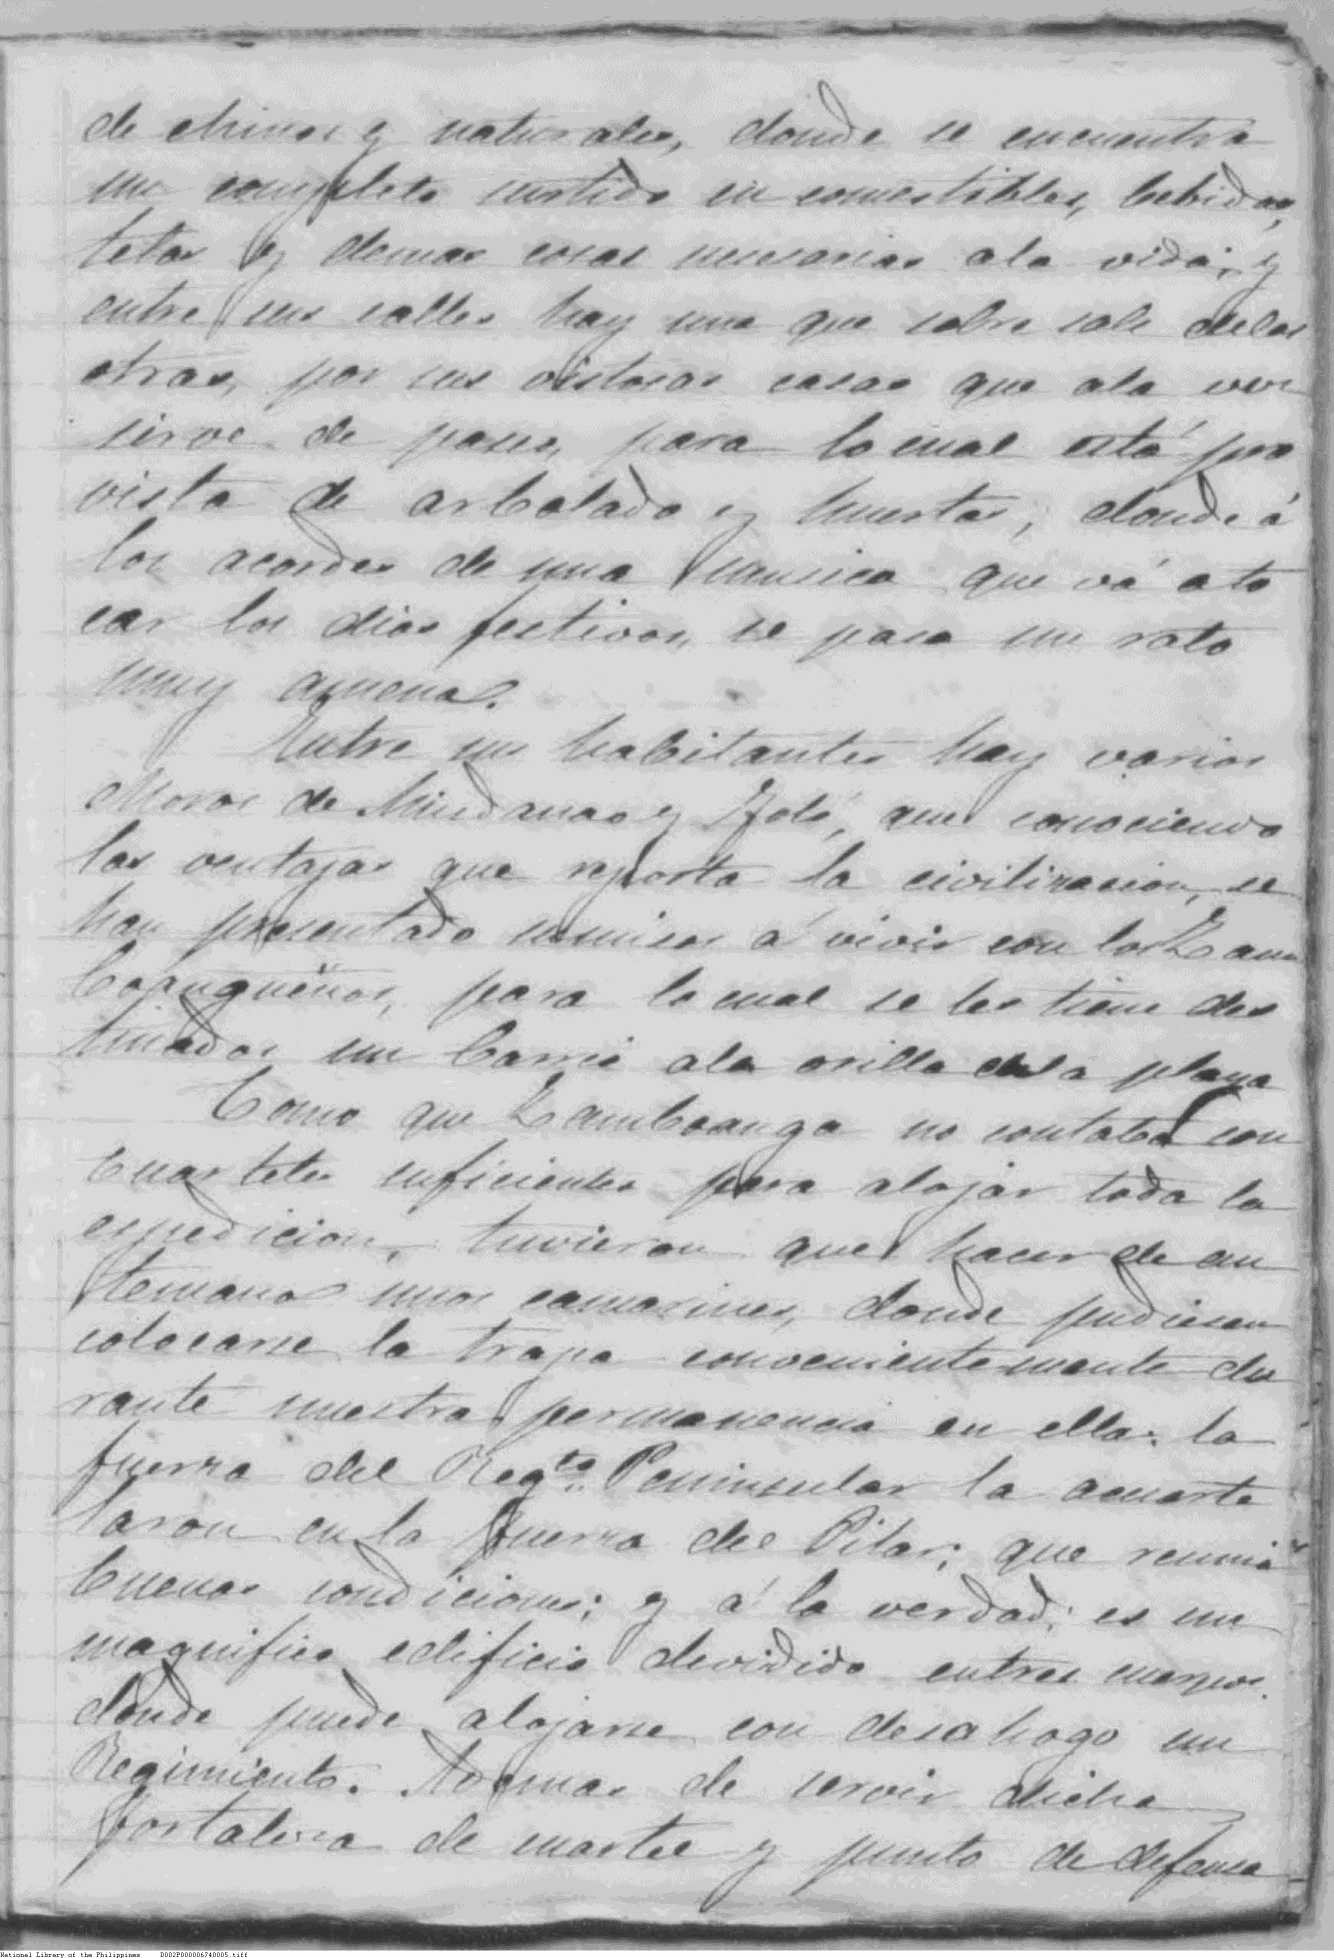 de chinos y naturales, donde se encuentra
un completo surtido en comestibles, bebidas,
telas y demas cosas necesarias ala vida; y
entre sus calles hay una que sobre sale delas
otras, por sus vistosas casas que ala vez
sirve de paseo, para lo cual está pro
vista de arbolado y huertas, donde á
los acordes de una musica que vá a to
car los dias festivos, se pasa un rato
muy ameno.
Entre sus habitantes hay varios
Moros de Mindanao y Joló, que conociendo
las ventajas que reporta la civilizacion, se
han presentado sumisos á vivir con los Zam
boangueños, para lo cual se les tiene des
tinados un barrio ala orilla dela playa
Como que Zamboanga no contaba con
cuarteles suficientes para alojar toda la
espedicion, tuvieron que hacer de an
temano unos camarines, donde pudiesen
colocarse la tropa convenientemente du
rante nuestra permanencia en ella: la
fuerza del Regto. Peninsular la acuarte
laron en la fuerza del Pilar; que reunia
buenas condiciones; y á la verdad; es un
magnifico edificio devidido entres cuerpos
donde puede alojarse con desahogo un
Regimiento. Ademas de servir dicha
fortaleza de cuartel y punto de defensa
National Library of the Philippines D002P000006740005.tiff